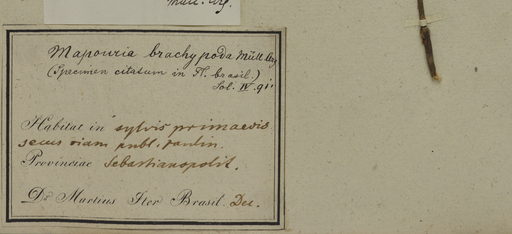 Müll. Arg.
Mapouria brachypoda Müll. Arg.
(Specimen citatum in Fl. brasil.)
Sol. IV. 91:
Habitat in sylvis primaevis
secus viam publ. Paulin.
Provinciae Sebastianopolit.
Dr. Martius Iter Brasil. Dec.